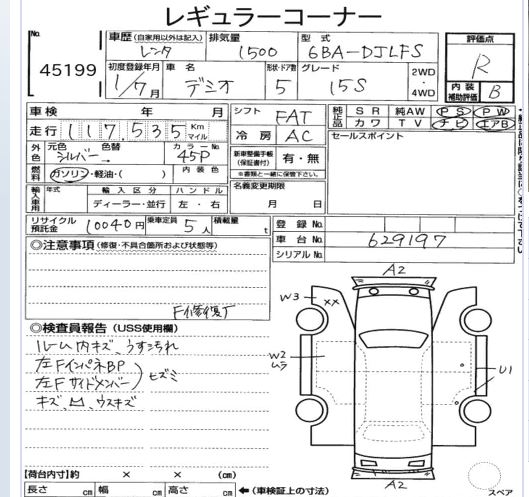 レギュラーコーナー
No. 45199
車歴 (自家用以外は記入) レンタ
排気量 1500
型式 6BA-DJLFS
評価点 R
初度登録年月 1/7月
車名 デミオ
形状・ドア数 5
グレード 15S
2WD・4WD
内装補助評価 B
車検 年 月
シフト FAT
純正品 SR 純AW PS PW
カワ TV ナビ エアB
走行 117,535 Km マイル
冷房 AC
セールスポイント
外色 元色 シルバー 色替 カラーNo. 45P
新車整備手帳(保証書付) 有・無
※書類と一緒に保管下さい。
燃料 ガソリン・軽油・( ) 内装色
名義変更期限 月 日
輸入車用 年式 輸入区分 ハンドル
ディーラー・並行 左・右
リサイクル預託金 10040円 乗車定員 5人 積載量 t
登録No.
車台No. 629197
シリアルNo.
◎注意事項 (修復・不具合箇所および状態等)
F修復了
◎検査員報告 (USS使用欄)
ルーム内キズ、うすごれ
左FインパネBP
左Fサイドメンバー
ヒズミ
キズ、凹、ウスキズ
A2
W3
XX
W2
ムラ
U1
A2
スペア
【荷台内寸】約 × × (cm)
長さ cm 幅 cm 高さ cm ←(車検証上の寸法)